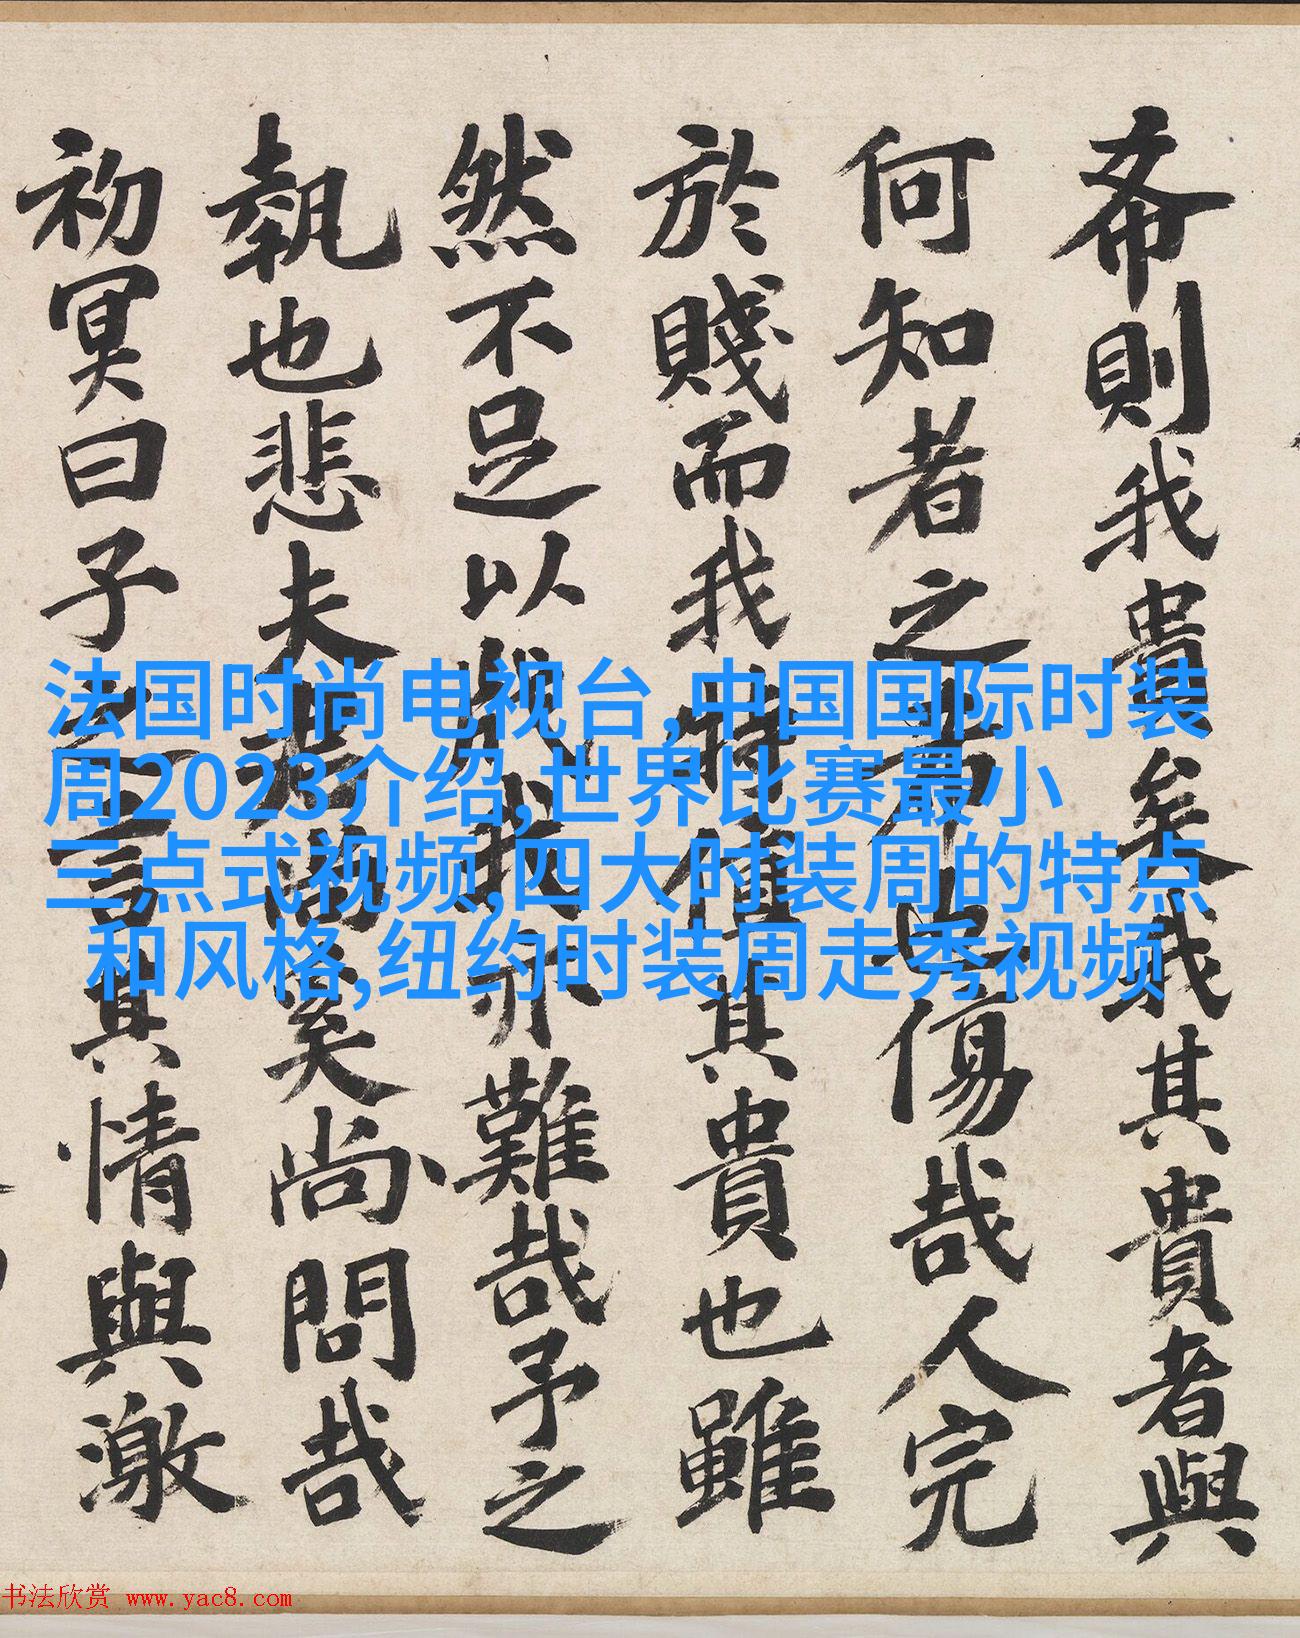 希則我貴矣我其貴者與
何知者之寡也傷哉人完
於賤而我特值其貴也雖
然不足以我亦難哉予之
執也悲夫矣尚問哉
初冥曰子之言其情與激
法国时尚电视台,中国国际时装
周2023介绍,世界比赛最小
三点式视频,四大时装周的特点
和风格,纽约时装周走秀视频
书法欣赏 www.yac8.com